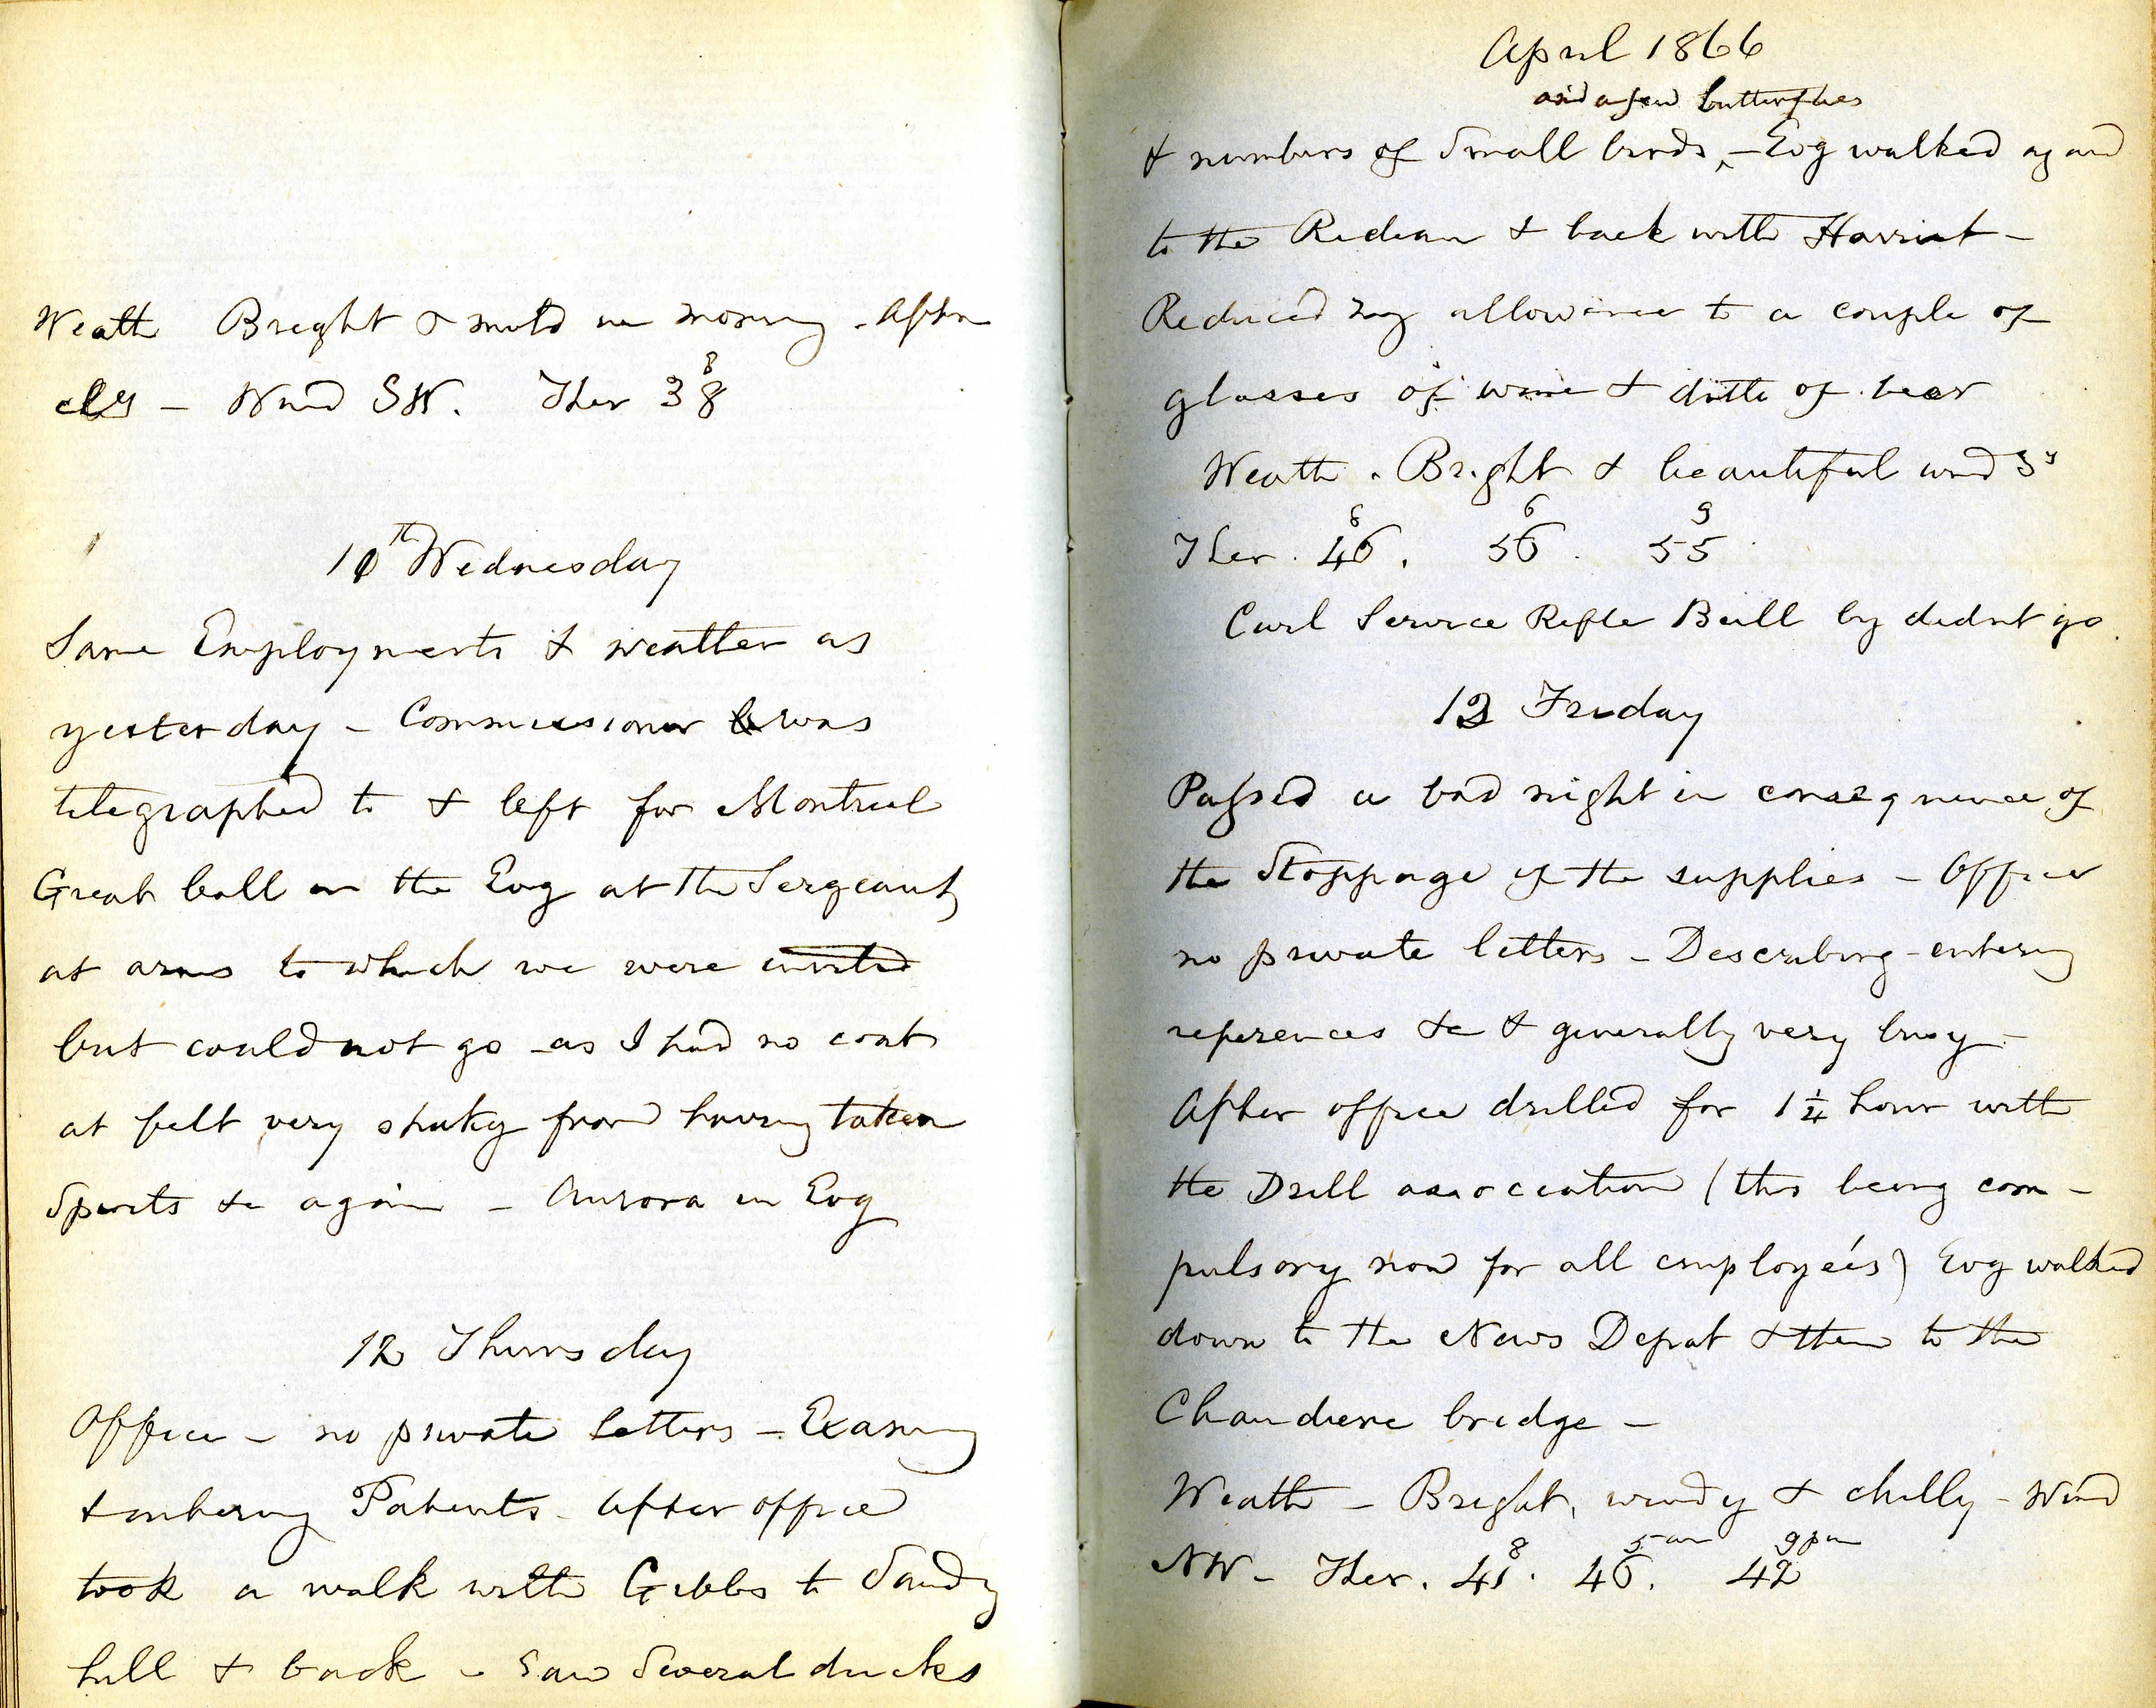 Weath Bright & mild in morning - Aftn
cly - Wind SW. Ther 38 8
11th Wednesday
Same Employments & weather as
yesterday - Commissioner was
telegraphed to & left for Montreal
Great ball in the Evg at the Sergeant
at arms to which we were invited
but could not go as I had no coat
at felt very shaky from having taken
Spirits &c again - Aurora in Evg
12 Thursday
Office - no private letters - Examng
& entering Patents - After office
took a walk with Gibbs to Sandy
hill & back - Saw Several ducks
April 1866
and a few butterflies
& numbers of Small birds, - Evg walked again
to the Redean & back with Harriet -
Reduced my allowance to a couple of
glasses of wine & ditto of beer
Weath. Bright & beautiful wind Sy
8 6 9
Ther. 46. 56. 55
Civil Service Rifle Ball by didnt go
13 Friday
Passed a bad night in consequence of
the Stoppage of the supplies - Office
no private letters - Describing - entering
references &c & generally very busy -
After office drilled for 1 1/4 hour with
the Drill association (this being com-
pulsory now for all employeés) Evg walked
down to the News Depot & then to the
Chaudiere bridge -
Weath - Bright, windy & chilly - Wind
8 5 9 pm
NW - Ther. 41. 46. 42